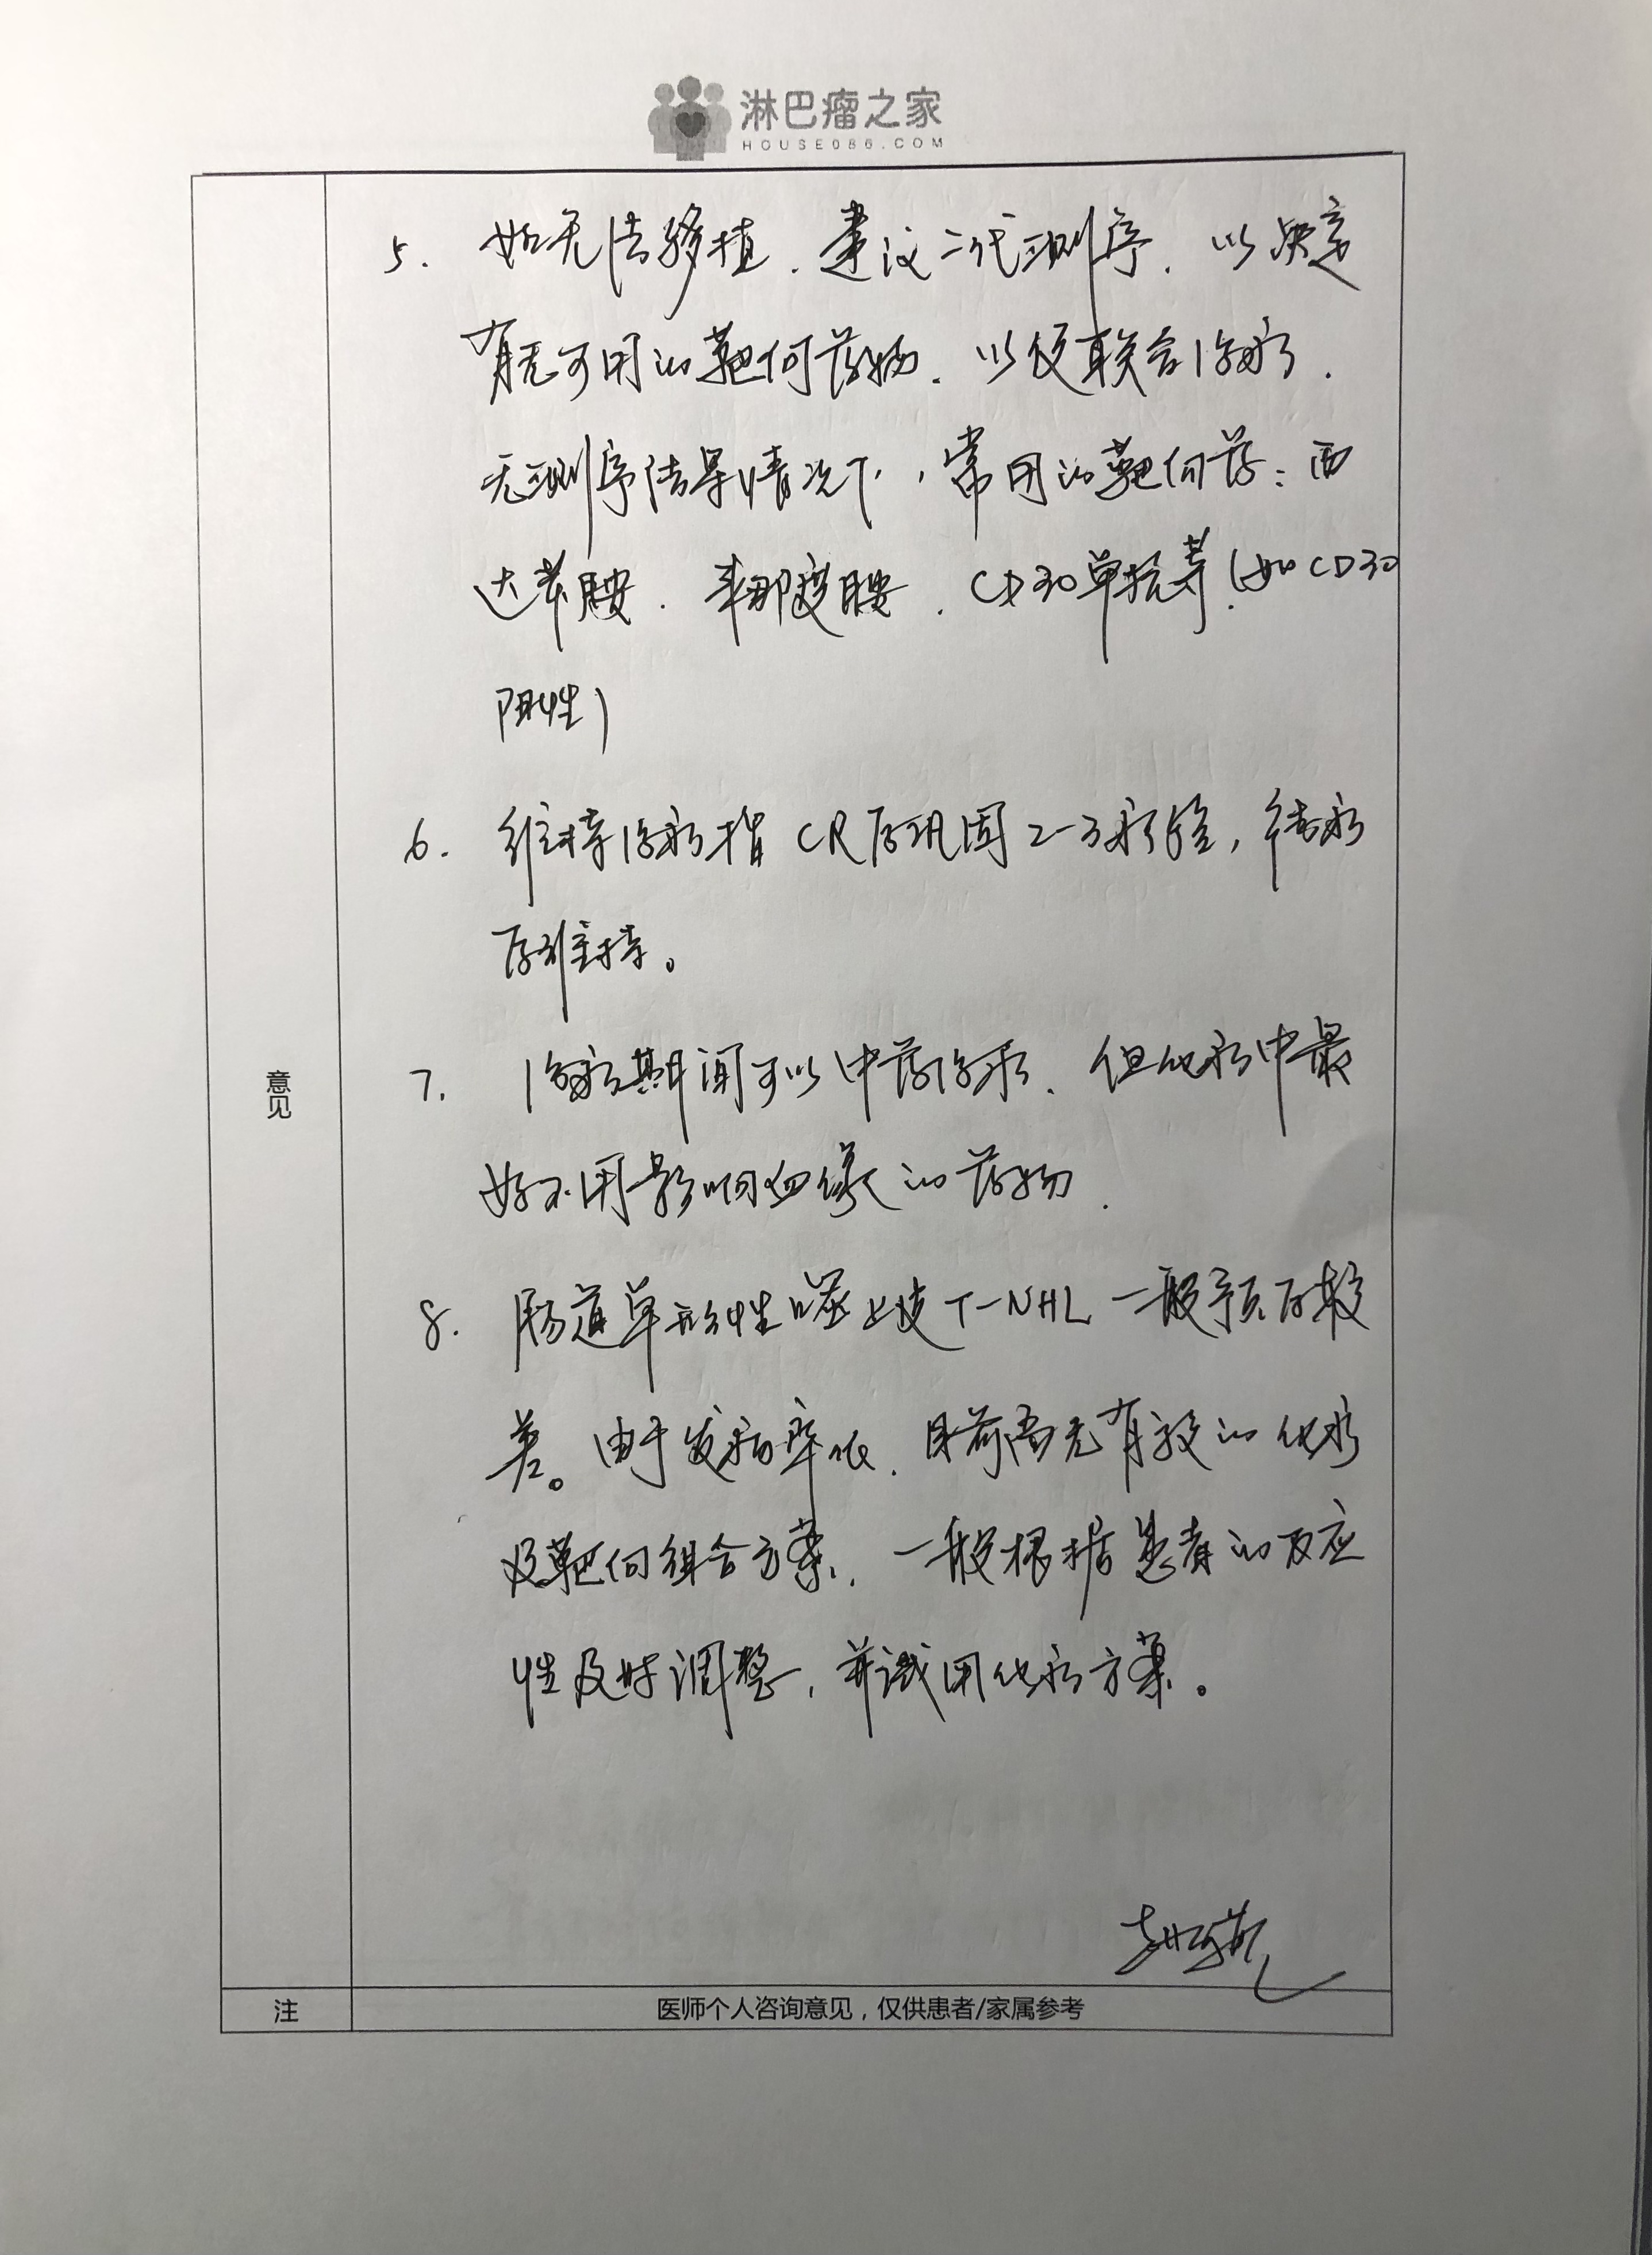 淋巴瘤之家
HOUSE086.COM
5. 如无法移植、建议二代测序、以决定
有无可用的靶向药物、以便联合治疗.
无测序结果情况下,常用的靶向药:西
达苯胺、来那度胺、CD30单抗等(如CD30
阳性)
6. 维持治疗指CR后巩固2-3疗程,结疗
后维持。
7. 治疗期间可以中药治疗、但化疗中最
好不用影响血象的药物.
意见
8. 肠道单形性嗜上皮T-NHL一般预后较
差。由于发病率低、目前尚无有效的化疗
及靶向组合方案、一般根据患者的反应
性及时调整,并试用化疗方案。
注
医师个人咨询意见,仅供患者/家属参考